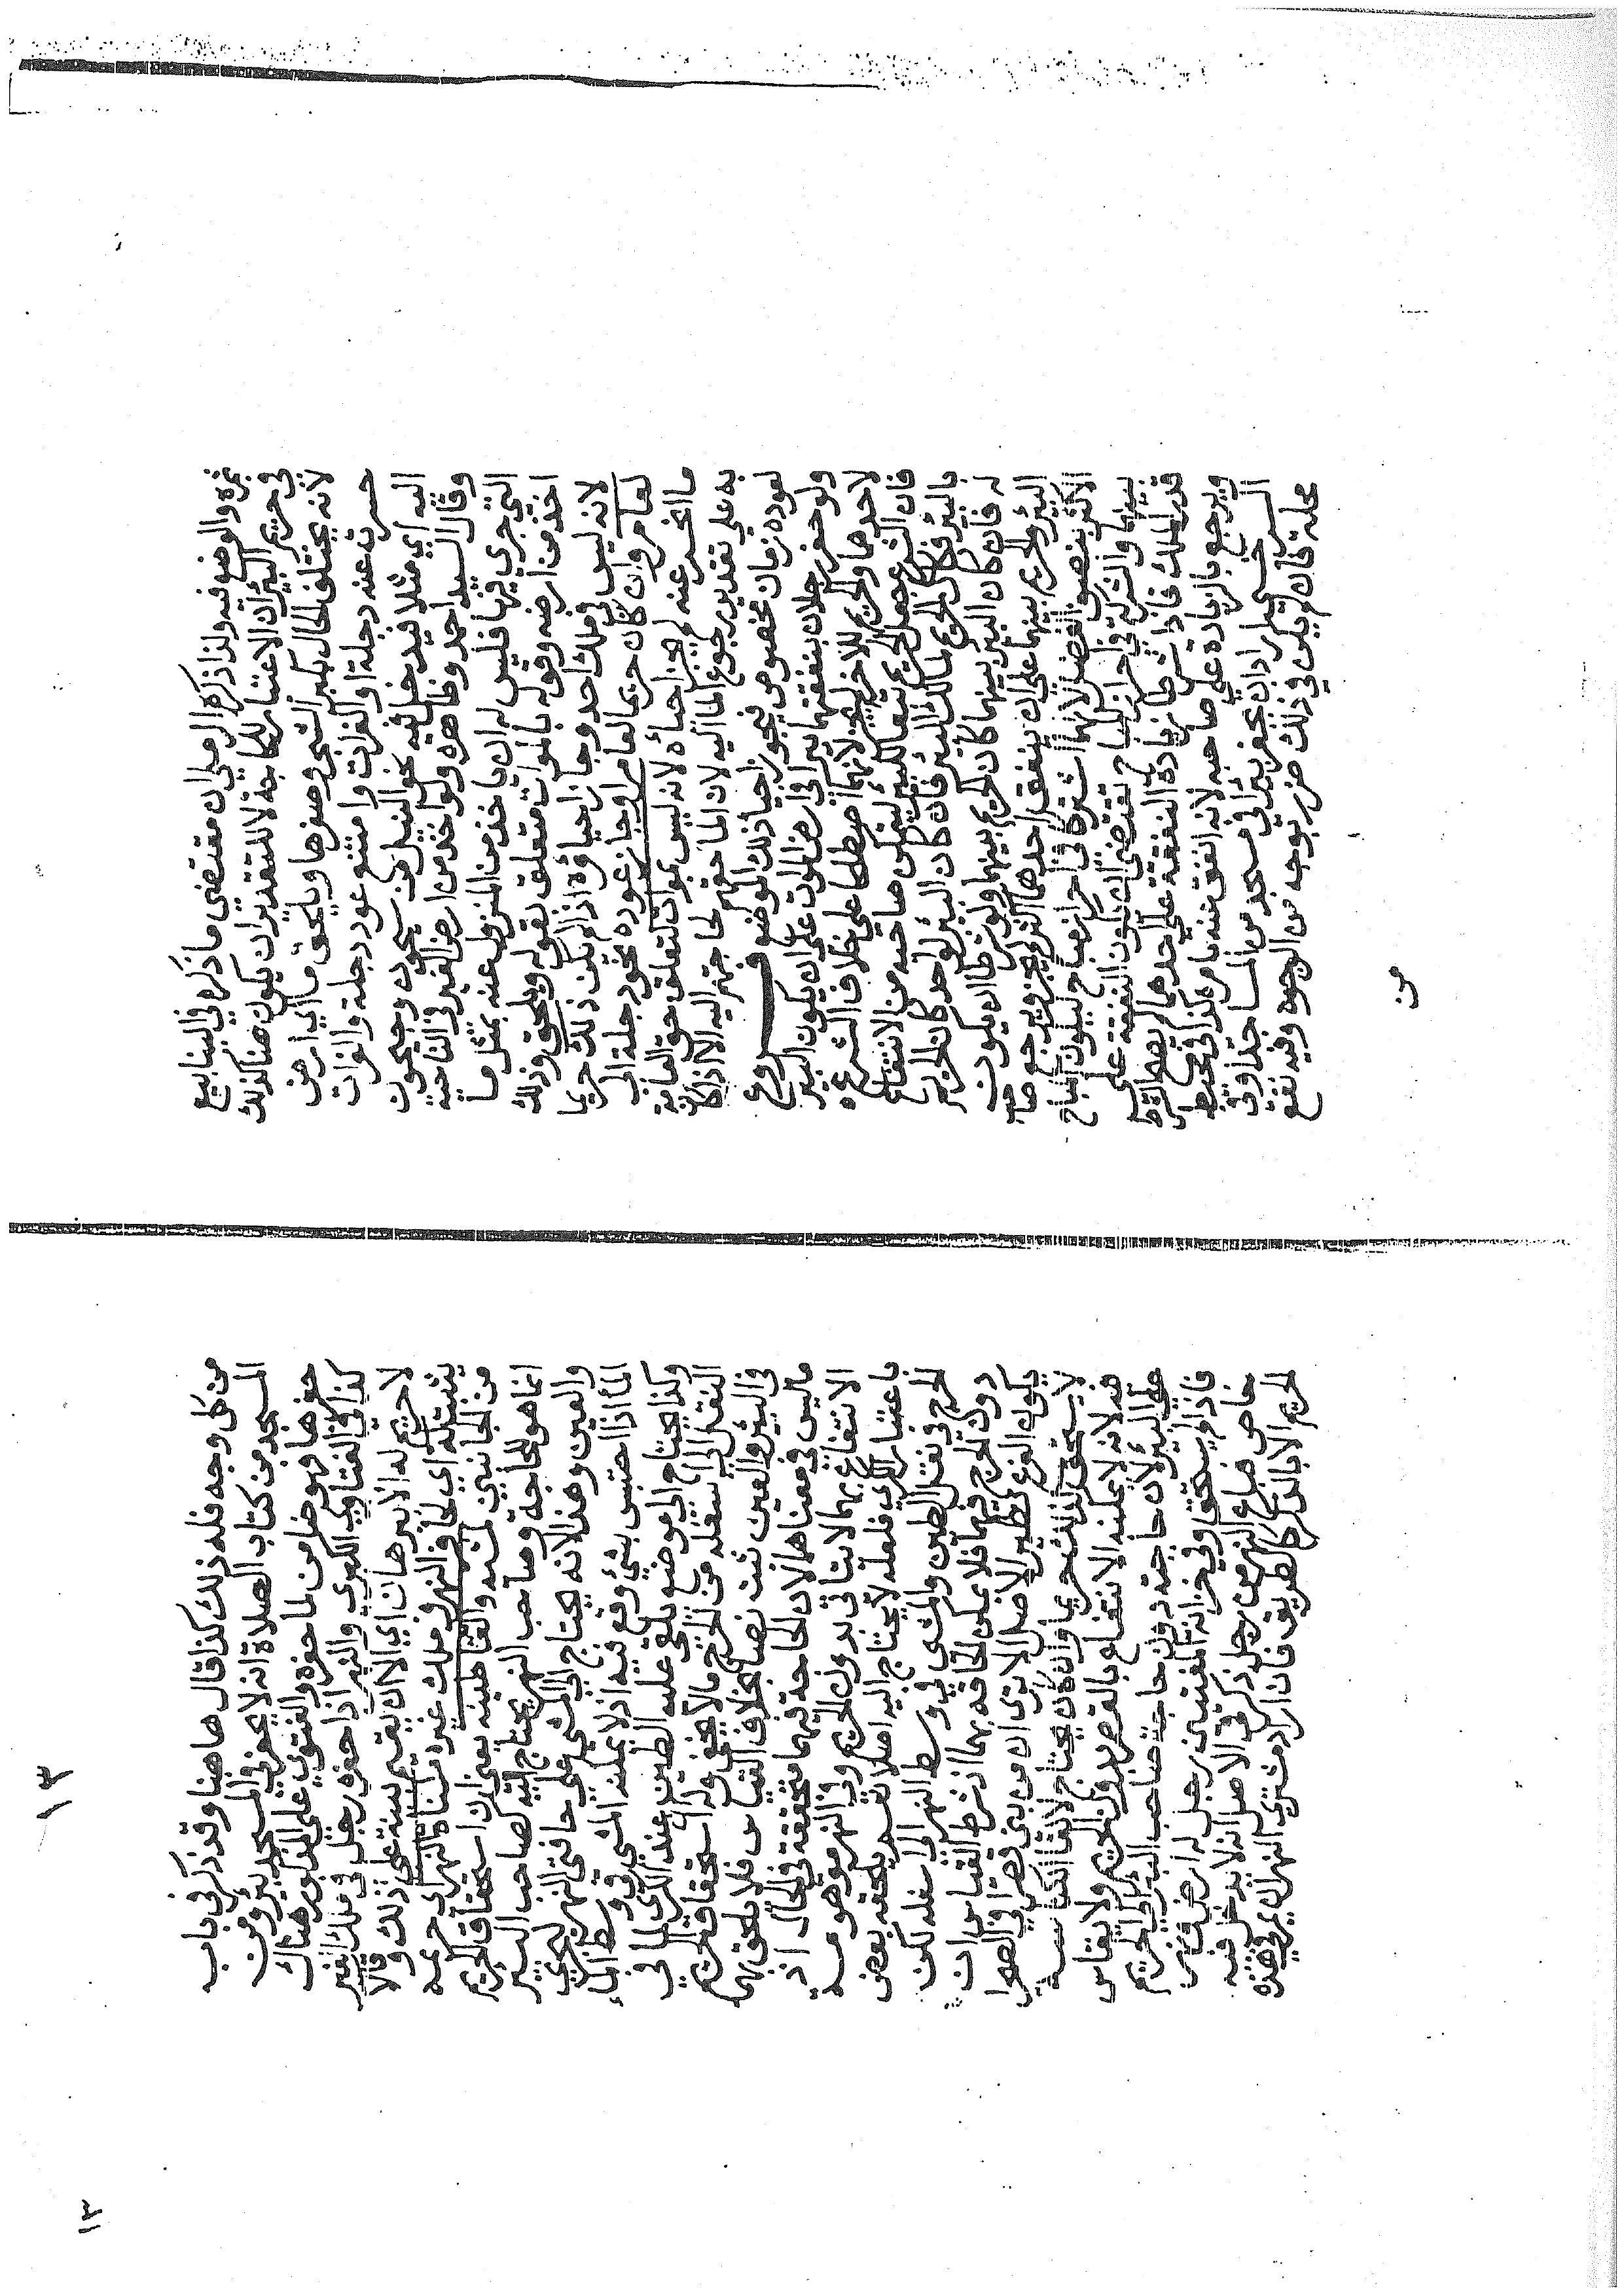 غيره والوضع فيه ولذا ذكر الرملي ان مقتضى ما ذكر في الينابيع
في حريم البئر ان الاعتبار للحاجة لا للتقدير ان يكون هنا كذلك
لانه يختلف الحال بكبر الشجر وصغرها ويلحق ما اي ارض
حسرت عنه دجلة او الفرات وامتنع عود دجلة والفرات
اليه اي مثلا فيدخل فيه نحو النيل من سيحون وجيحون
وقال السيد احمد وظاهره ولو اخذ من ارض الغير في الناحية
التي جرى فيها فليس له ان ياخذ من المنزول عنه بمثل ما
اخذ من ارضه وقوله بالموات متعلق بقوله ويلحق وذلك
لانه ليس في ملك احد وجاز احياؤه اذا لم يكن ذلك حريما
لعامر وان كان حريما لعامر او جاز عوده نحو دجلة الى
ما انحسر عنه لم يجز احياءه لانه ليس بموات لتعلق حق العامة
به على تقدير رجوع الما اليه لان الما حقهم لحاجتهم اليه الا اذا كان
لعوده زمان مخصوص فيجوز احيا ذلك الموضع فروع
ولو حفر رجلان بنفقتهما بيرا في ارض الموات على ان يكون البير
لاحدهما والحريم للاخر لم يجز لانهما اصطلحا على خلاف الشرع
فان الشرع جعل الحريم تبعا للبير ليتمكن صاحبه من الانتفاع
بالبير فكان الحريم لمالك البير فان كان البير لواحد كان الحريم
له فان كان البير بينهما كان الحريم بينهما ولو شرطا ان يكون
البير والحريم بينهما على ان ينفق احدهما اكثر لم يجز ويرجع صاحب
الاكثر بنصف الفضل لانهما اشتركا في احراز مباح ليكون المباح
بينهما والشركة في احراز المباح تقتضي ان تكون النفقة على
قدر الملك فاذا شرطا زيادة النفقة على احدهما لم يصح الشرط
ويرجع بالزيادة على صاحبه لانه انفق عنه بامره كذا في محيط
السرخسي رجل اراد ان يحفر بيرا في مسجد من المساجد او في
محلة فان لم يكن في ذلك ضرر بوجه من الوجوه وفيه نفع
من
١٣
من كل وجه فله ذلك كذا قال هاهنا وقد ذكر في باب
المسجد من كتاب الصلاة انه لا يحفر في المسجد بير ومن
حفرها فهو ضامن لما حفره والفتوى على المذكور هناك
كذا في الفتاوى الكبرى والنهر اذا حفره رجل في ملك الغير
لا حريم له الا ببرهان اي الا ان يقيم بينة على ذلك وقالا
يثبت له اي لحافر النهر في ملك غيره مسناة النهر اي حريمه
من الجانبين لمشيه والقا طينه يعني ان استحقاق الحريم
انما هو للحاجة وصاحب النهر يحتاج اليه كصاحب البير
والعين وهذا لانه يحتاج الى المشي على حافتي النهر ليجري
الما اذا احتبس بشي وقع فيه اذ لا يمكنه المشي في وسط الما
وكذا يحتاج الى موضع يلقى عليه الطين عند الكري لما في
النقل الى اسفله من الحرج ما لا يخفى وله استحقاق الحريم
في البئر والعين ثبت نصا بخلاف القياس فلا يلحق بهما
ما ليس في معناهما لان الحاجة فيهما متحققة في الحال اذ
الانتفاع بهما لا يتاتى بدون الحريم وفي النهر موهومة
باعتبار الكري فلعله لا يحتاج اليه اصلا نعم يلحقه بعض
الحرج في نقل الطين والمشي في وسط النهر الى اسفله لكن
دون الحرج فيهما فلا يمكن الحاقه بهما اذ شرط القياس ان
يكون الفرع نظير الاصل الا ترى ان من بنى قصرا في الصحرا
لا يستحق لذلك حريما وان كان يحتاج لالقا الكناسة
فيه لانه لا يمكنه الانتفاع بالقصر بدون الحريم ولا يقاس
على البير لان حاجته دون حاجة صاحب البير الى الحريم
فاذا لم يستحق وفي خزانة المفتين رجل له ارض فيها نهر
خاص فباع النهر من رجل ذكر في الاصل انه لا يدخل فيه
الحريم الا بالذكر كالطريق فان اراد مشتري النهر ان يمر في هذه
١٣